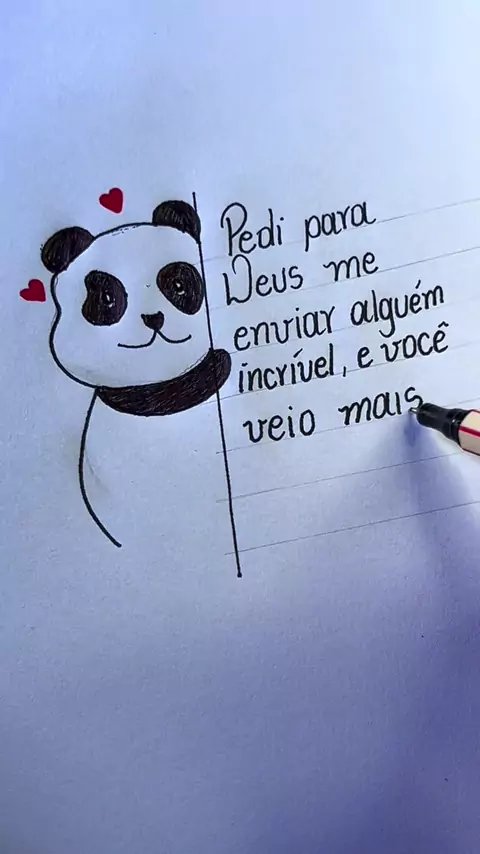 Pedi para
Deus me
enviar alguém
incrível, e você
veio mais